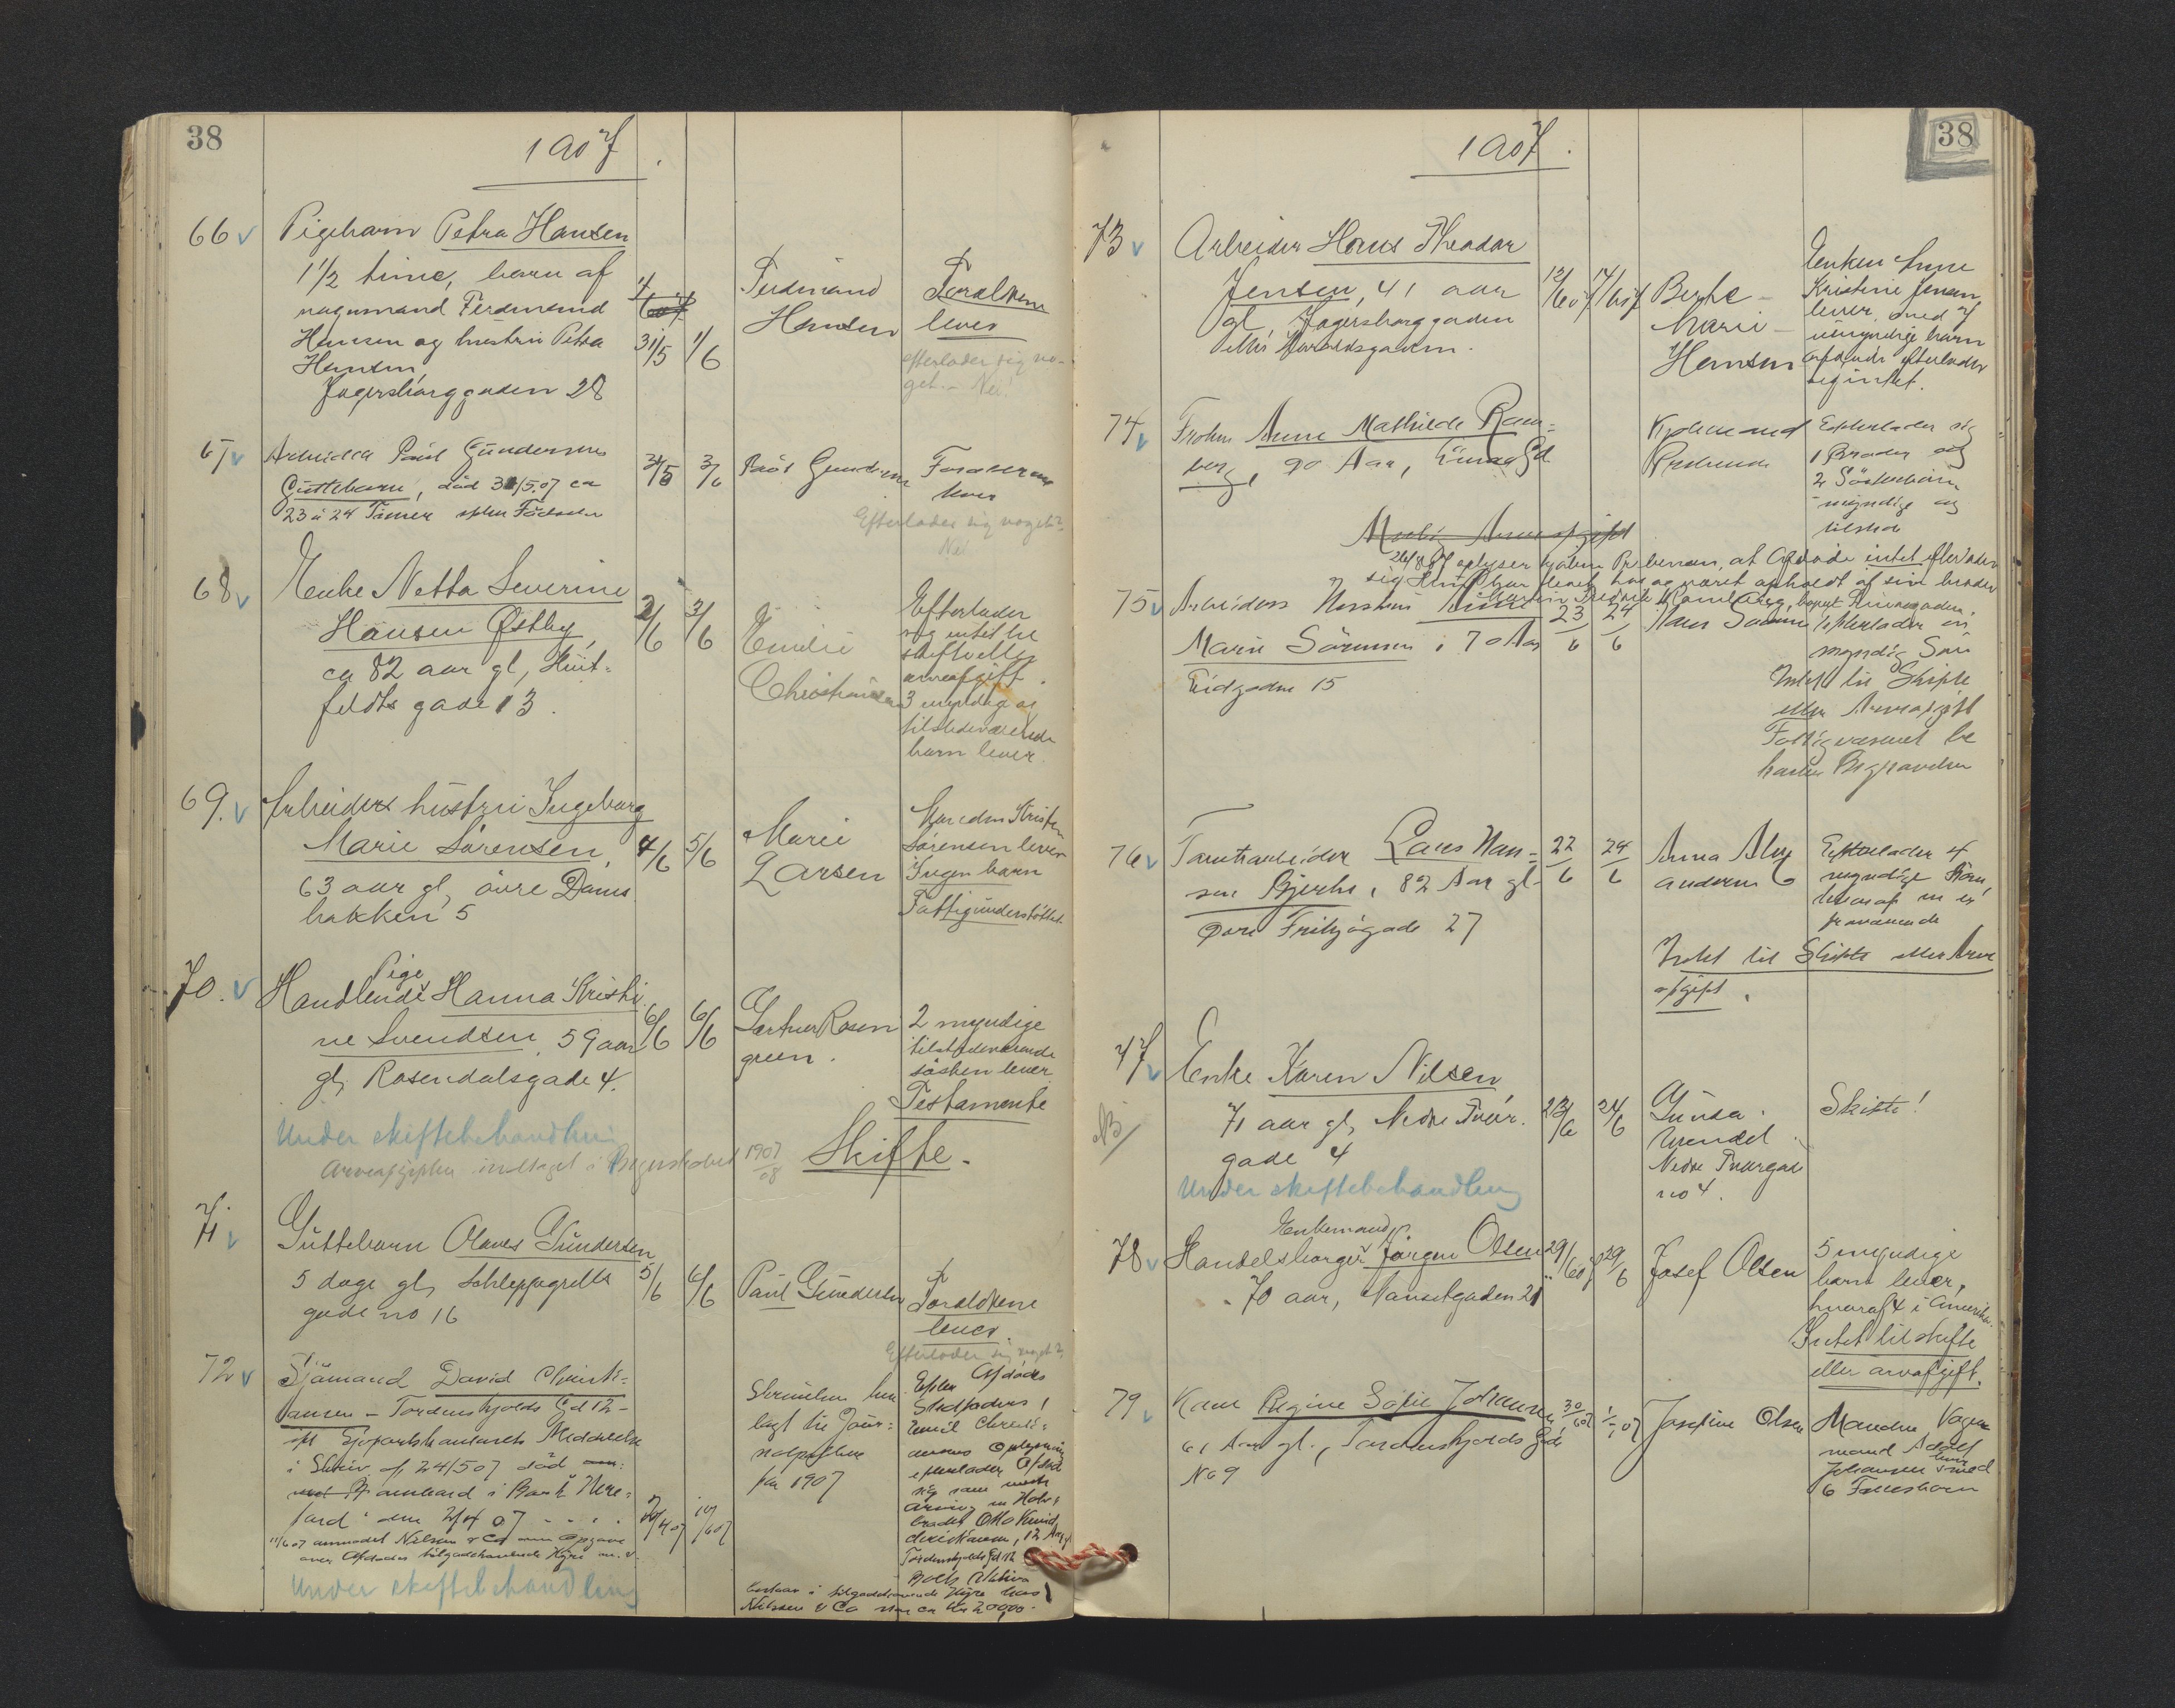 38
1907
66 v Pigebarn Petra Hansen
1 1/2 time, barn af
vognmand Ferdinand
Hansen og hustru Petra
Hansen,
Jegersborggaden 28
31/5 1/6
Ferdinand
Hansen
Forældrene
lever
efterlader sig no-
get. - Nei!
67 v Arbeider Paul Gundersens
Guttebarn, död 31/5.07 ca
23 à 24 Timer efter Födselen
31/5 3/6
Paul Gundersen
Forældrene
lever
Efterlader sig noget?
Nei
68 v Enke Netta Severine
Hansen Østby,
ca 82 aar gl, Huit-
feldts gade 13.
2/6 3/6
Emilie
Christiansen
Efterlader
sig intet til
skifte eller
arveafgift.
3 myndige og
tilstedeværende
barn lever.
69. v Arbeiders hustru Ingeborg
Marie Sørensen,
63 aar gl, övre Dams
bakken 5
4/6 5/6
Marie
Larsen
Manden Kristen
Sørensen lever
Ingen barn
Fattigunderstöttet
70. v Handlende Pige Hanna Kristi
ne Svendsen, 59 aar
gl, Rosendalsgade 4.
6/6 6/6
Gartner Rosen
green.
2 myndige
tilstedeværende
søsken lever
Testamente
Under skiftebehandling
Arveafgiften indtaget i Regnskabet 1907/08
Skifte.
71. v Guttebarn Olaves Gundersen
5 dage gl, Schleppegrells
gade no 16
5/6 6/6
Paul Gundersen
Forældrene
lever.
Efterlader sig noget?
72 v Sjömand David Christi-
ansen - Tordenskjolds Gd 12 -
i Skriv. af 24/5 07 död
ombord i Bark Here-
ford den 2/4 07
2/4 07 10/6 07
11/6 07 anmodet Nielsen & Co om Opgave
over Afdödes tilgodehavende Hyre m. v.
Under skiftebehandling
Skrivelsen hen
lagt til Jour-
nalsaken
for 1907
Efter Afdödes
Stedfaders,
Emil Christi-
ansens Oplysning
efterlader Afdöde
sig som
arving en Halv-
broder Otto
Christiansen, 12 Aar gl
Tordenskjolds Gd 12
Boets Aktiva
bestaar i tilgodehavende Hyre hos
Nielsen & Co
38
1907.
73 v Arbeider Hans Theodor
Jensen, 41 aar
gl, Jegersborggaden
Peter Haraldsgaden.
12/6 07 14/6 07
Berte
Marie
Hansen
Enken Anne
Kristine Jensen
lever med 7
umyndige barn
afdøde efterlader
sig intet.
74 v Frøken Anne Mathilde Ram-
berg, 90 Aar,
Kjøbmand
Efterlader sig
1 Broder og
2 Søsterbørn
myndige og
tilstede
Afdøde intet efterlader
sig
75 v Arbeiders Hustru
Marie Sörensen, 70 Aar
Eidgaden 15
23/6 24/6
Efterlader en
myndig Sön
Intet til Skifte
eller Arveafgift
Fattigvæsenet be
koster Begravelsen
76 v Tomtearbeider Lars Han-
sen Bjerke, 82 Aar gl.
Övre Fritzöegade 27
22/6 24/6
Anna
Andersen
Efterlader 4
myndige Börn,
hvoraf en er
fraværende
Intet til Skifte eller Arve
afgift.
77 v Enke Karen Nilsen
71 aar gl, Nedre Tvær.
gade 4
NB/
23/6 24/6
Gunda
Wendel
Nedre Tværgade
no 4.
Skifte!
Under skiftebehandling
78 v Handelsborger Enkemand Jörgen Olsen
70 aar, Nansetgaden 21
29/6 07 29/6
Josef Olsen
5 myndige
barn lever,
hvoraf 4 i Amerika.
Intet til skifte
eller arvafgift.
79 v Kone Regine Sofie Johansen
61 Aar gl., Tordenskjolds Gade
No 9
30/6 07 1/7 07
Josefine Olsen
Manden Vogn
mand Adolf
Johansen lever med
6 Fællesbörn